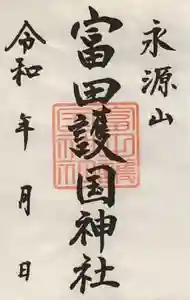 永源山
富田護国神社
令和 年 月 日